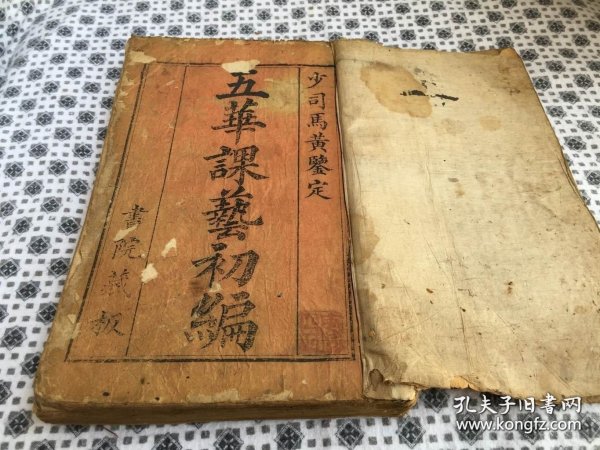 少司馬黄鑒定
五華課藝初編
書院藏板
孔夫子旧書网
www.kongfz.com